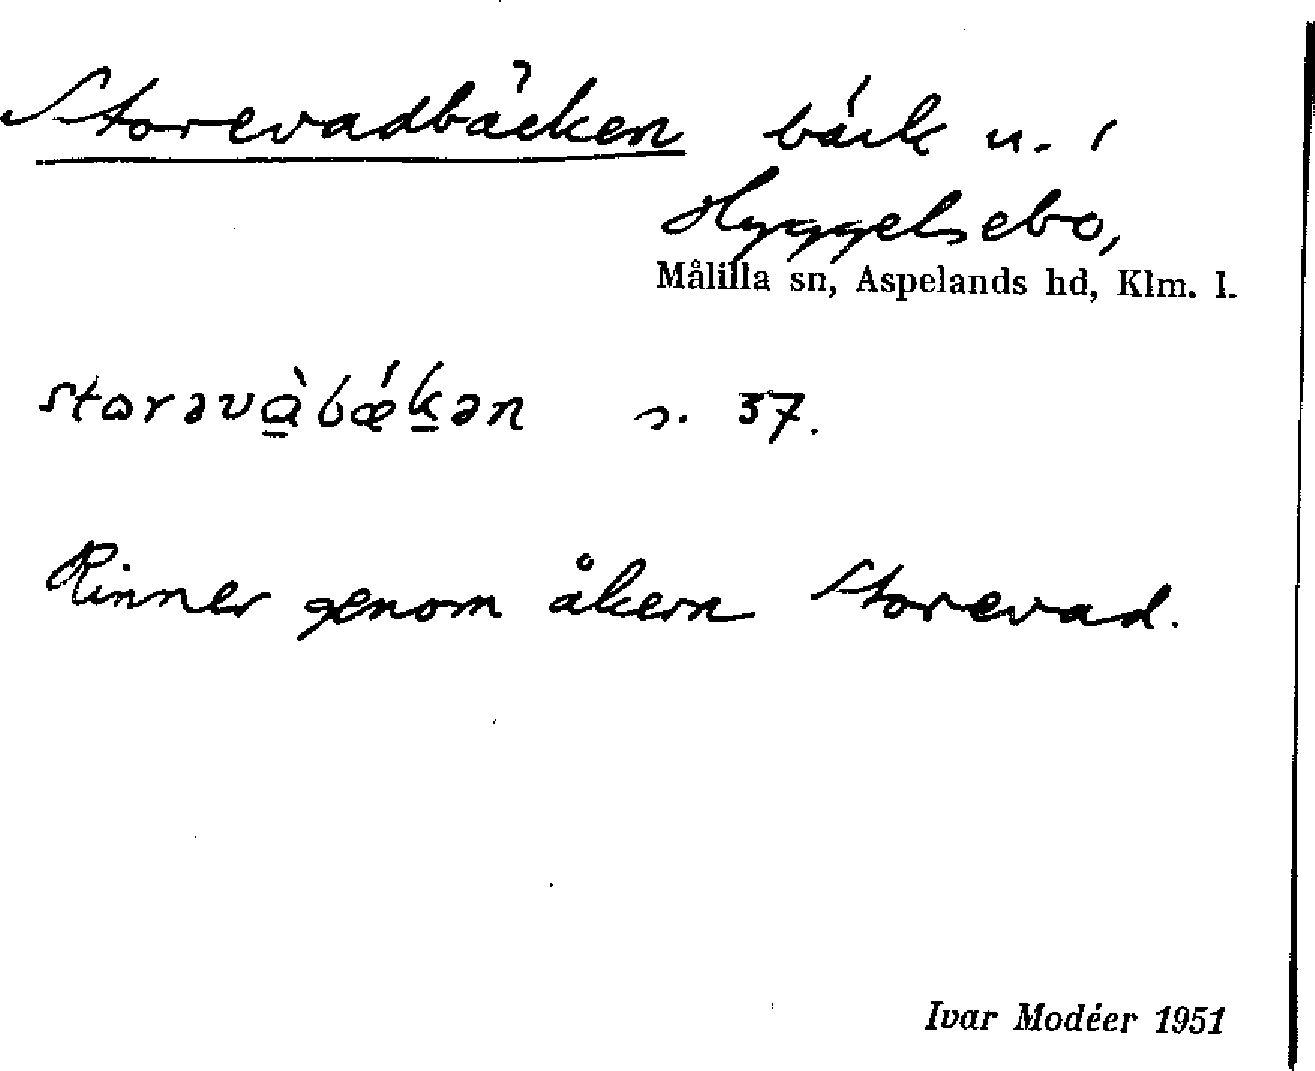 Storevadbäcken bäck u. i
Hyggelsebo,
Målilla sn, Aspelands hd, Klm. l.
storəvàbǽkən s. 37.
Rinner genom åkern Storevad.
Ivar Modéer 1951